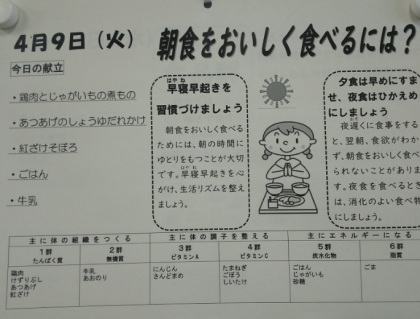 4月9日（火）　朝食をおいしく食べるには？
今日の献立
・鶏肉とじゃがいもの煮もの
・あつあげのしょうゆだれかけ
・紅ざけそぼろ
・ごはん
・牛乳
はやね
早寝早起きを
習慣づけましょう
朝食をおいしく食べ
るためには、朝の時間に
ゆとりをもつことが大切
です。早寝早起きを心
がけ、生活リズムを整え
ましょう。
夕食は早めにすま
せ、夜食はひかえめ
にしましょう
夜遅くに食事をする
と、翌朝、食欲がわか
ず、朝食をおいしく食べ
られないことがありま
す。夜食を食べるとき
は、消化のよい食べ物
にしましょう。
主に体の組織をつくる　主に体の調子を整える　主にエネルギーになる
1群　2群　3群　4群　5群　6群
たんぱく質　無機質　ビタミンA　ビタミンC　炭水化物　脂質
鶏肉　牛乳　にんじん　たまねぎ　ごはん　ごま
けずりぶし　あおのり　さんどまめ　ごぼう　じゃがいも
あつあげ　しいたけ　砂糖
紅ざけ